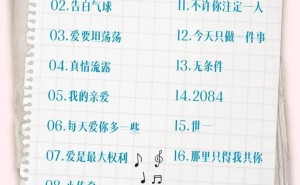 02.告白气球
03.爱要坦荡荡
04.真情流露
05.我的亲爱
06.每天爱你多一些
07.爱是最大权利
11.不许你注定一人
12.今天只做一件事
13.无条件
14.2084
15.世一
16.那里只得我共你